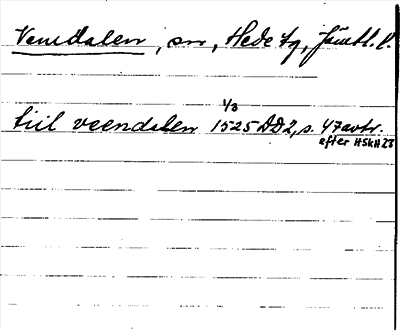 Vemdalen, sn, Hede tg, Jämtl. l.
1/3
till veendalen 1525 DD2, s. 47 avtr.
efter HSkH 23